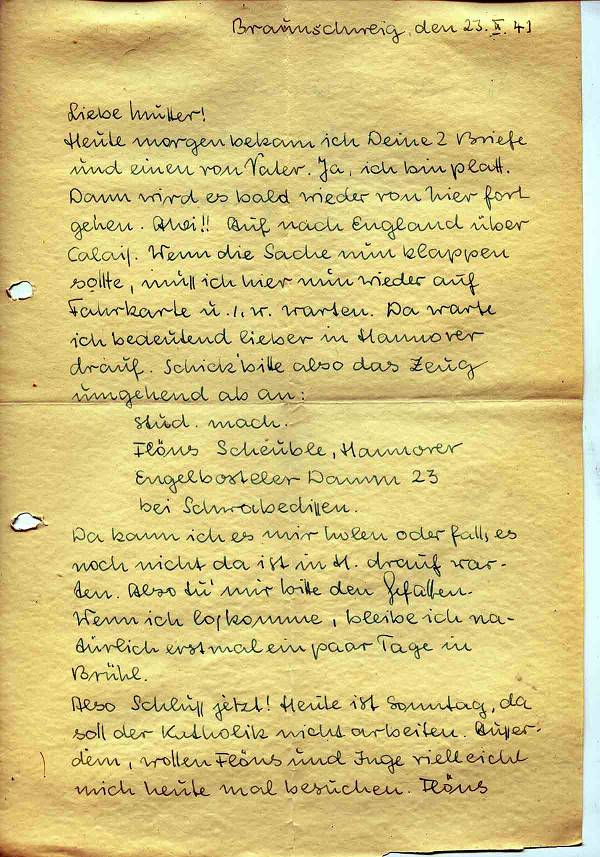 Braunschweig, den 23. XI. 41
Liebe Mutter!
Heute morgen bekam ich Deine 2 Briefe
und einen von Vater. Ja, ich bin platt.
Dann wird es bald wieder von hier fort
gehen. Ahoi!! Auf nach England über
Calais. Wenn die Sache nun klappen
sollte, muss ich hier nun wieder auf
Fahrkarte u.s.w. warten. Da warte
ich bedeutend lieber in Hannover
drauf. Schick' bitte also das Zeug
umgehend ab an:
stud. mach.
Flöns Scheuble, Hannover
Engelbosteler Damm 23
bei Schwabedissen.
Da kann ich es mir holen oder falls es
noch nicht da ist in H. drauf war-
ten. Also tu' mir bitte den Gefallen.
Wenn ich loskomme, bleibe ich na-
türlich erstmal ein paar Tage in
Brühl.
Also Schluss jetzt! Heute ist Sonntag, da
soll der Katholik nicht arbeiten. Ausser-
dem, wollen Flöns und Inge vielleicht
mich heute mal besuchen. Flöns